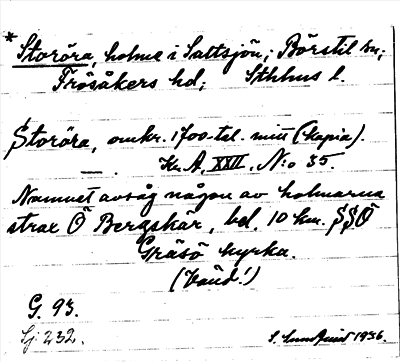 * Storöra, holme i Saltsjön; Börstil sn;
Frösåkers hd; Sthlms l.
Storöra, omkr. 1700-tal. mitt (kopia).
Kr. A, XXII, N:o 35.
Namnet avsåg någon av holmarna
strax Ö Bergskär, bel. 10 km. SSÖ
Gräsö kyrka.
(känd!)
G. 93.
Lj. 232.
S. Lundquist 1936.